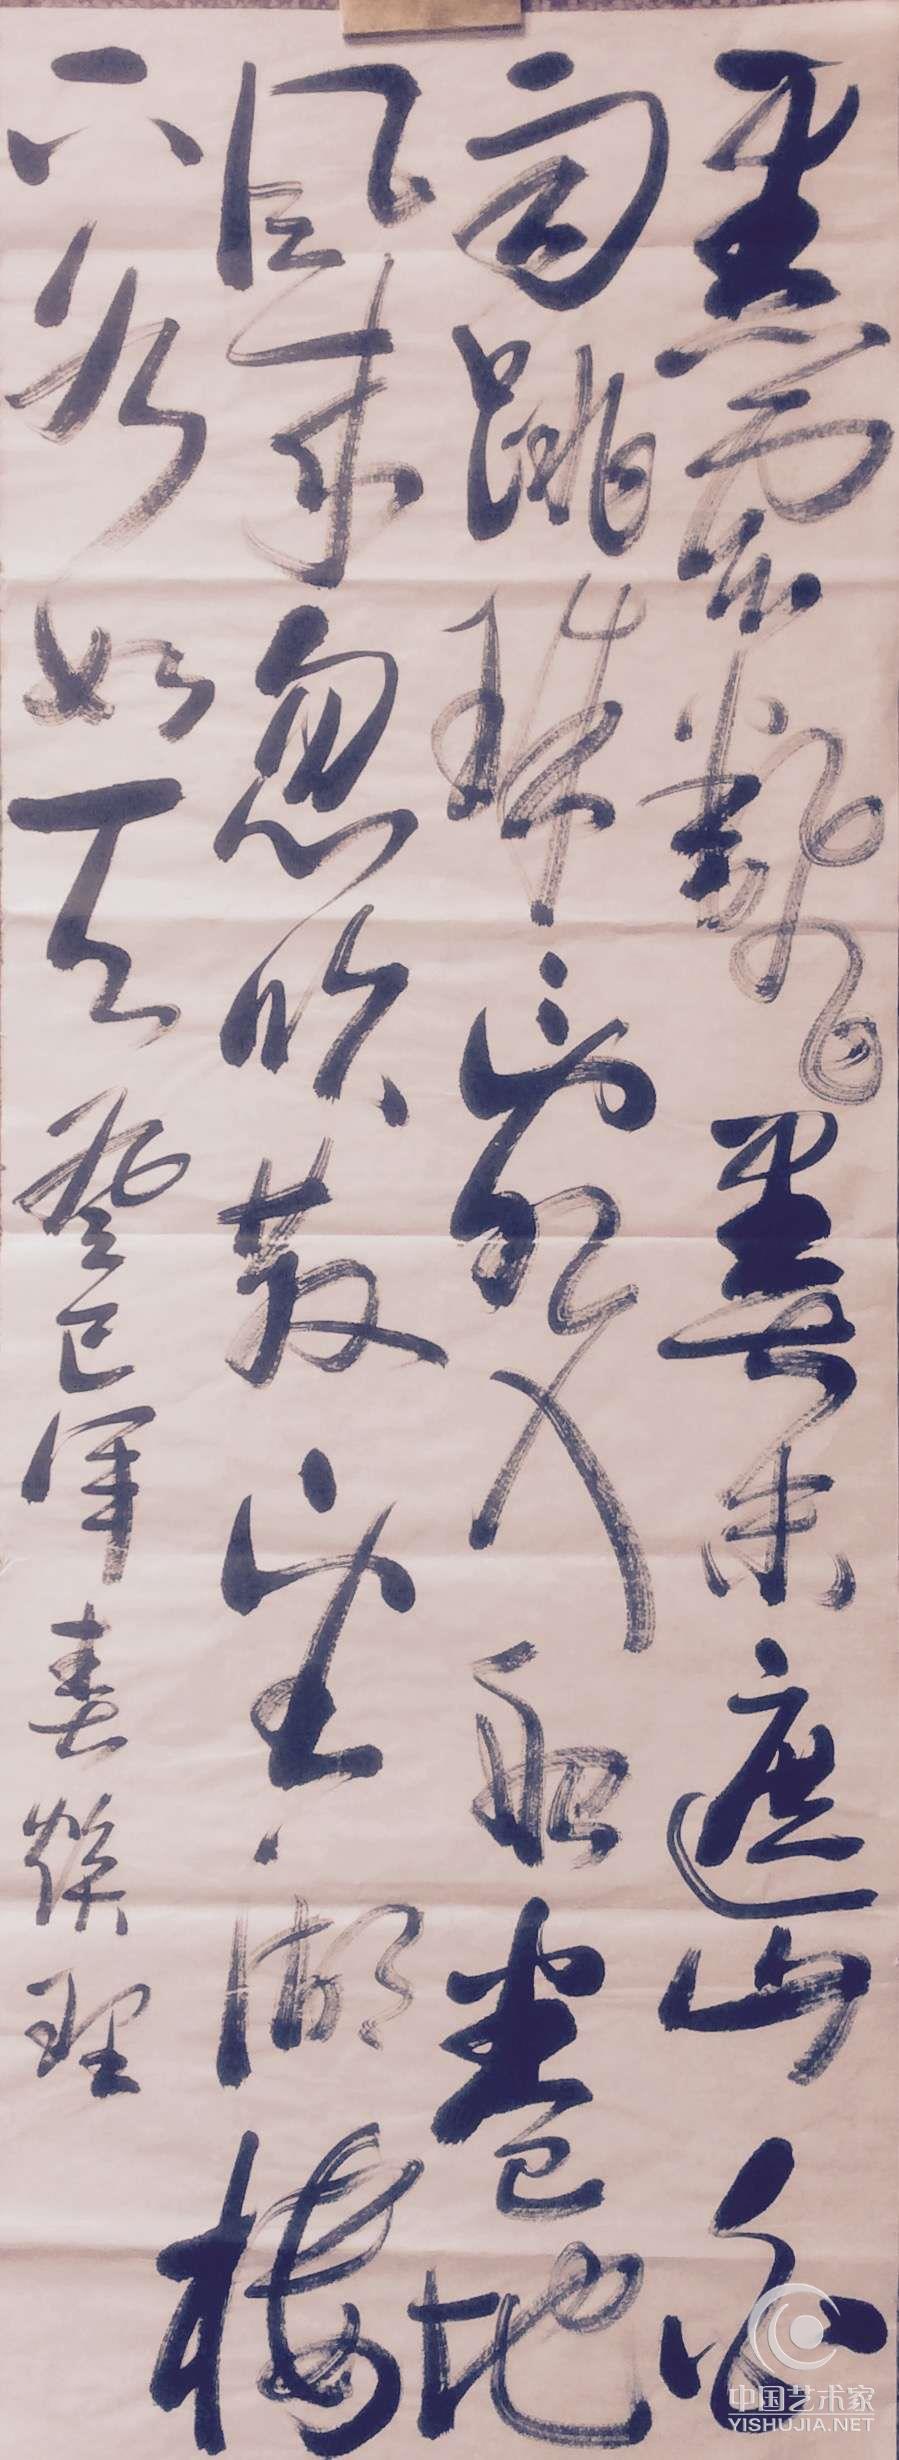 黑雲翻墨未遮山白
雨跳珠亂入船卷地
風来忽吹散望湖樓
下水如天 癸巳年春 理
中国艺术家
YISHUJIA.NET